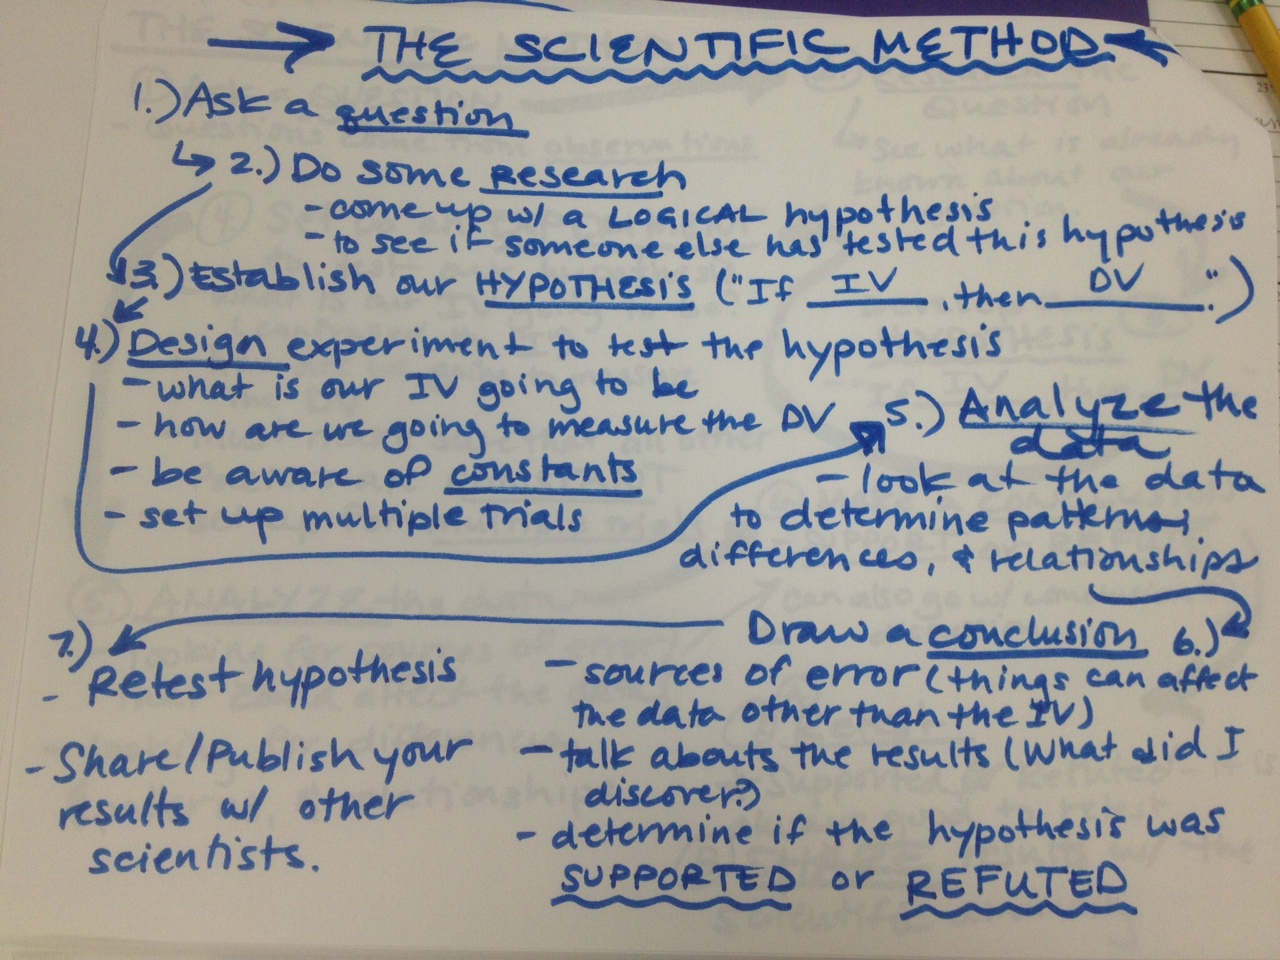 THE SCIENTIFIC METHOD
1.) Ask a question
2.) Do some Research
- come up w/ a LOGICAL hypothesis
- to see if someone else has tested this hypothesis
3.) Establish our HYPOTHESIS ("If IV, then DV.")
4.) Design experiment to test the hypothesis
- what is our IV going to be
- how are we going to measure the DV
- be aware of constants
- set up multiple trials
5.) Analyze the
data
- look at the data
to determine patterns,
differences, & relationships
6.) Draw a conclusion
- sources of error (things can affect
the data other than the IV)
- talk abouts the results (What did I
discover?)
- determine if the hypothesis was
SUPPORTED or REFUTED
7.)
- Retest hypothesis
- Share/Publish your
results w/ other
scientists.